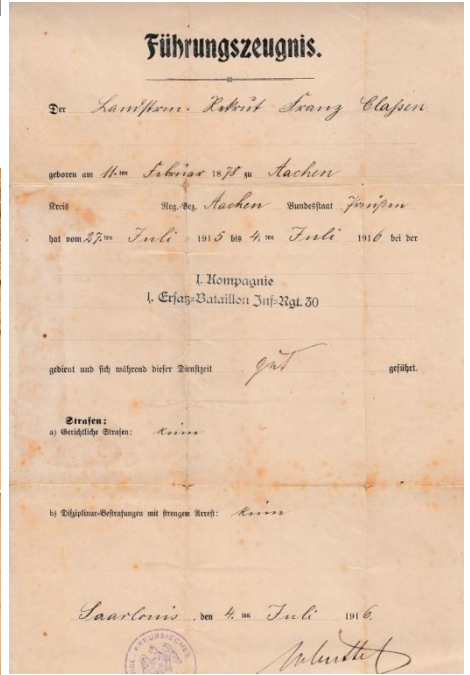 Führungszeugnis.
Der Landstrm. Rekrut Franz Classen
geboren am 11.ten Februar 1878 zu Aachen
Kreis Reg.-Bez. Aachen Bundesstaat Preußen
hat vom 27.ten Juli 1915 bis 4.ten Juli 1916 bei der
1. Kompagnie
1. Ersatz-Bataillon Inf-Rgt. 30
gedient und sich während dieser Dienstzeit gut geführt.
Strafen:
a) Gerichtliche Strafen: keine
b) Disziplinar-Bestrafungen mit strengem Arrest: keine
Saarlouis, den 4.ten Juli 1916.
PREUSSISCHES